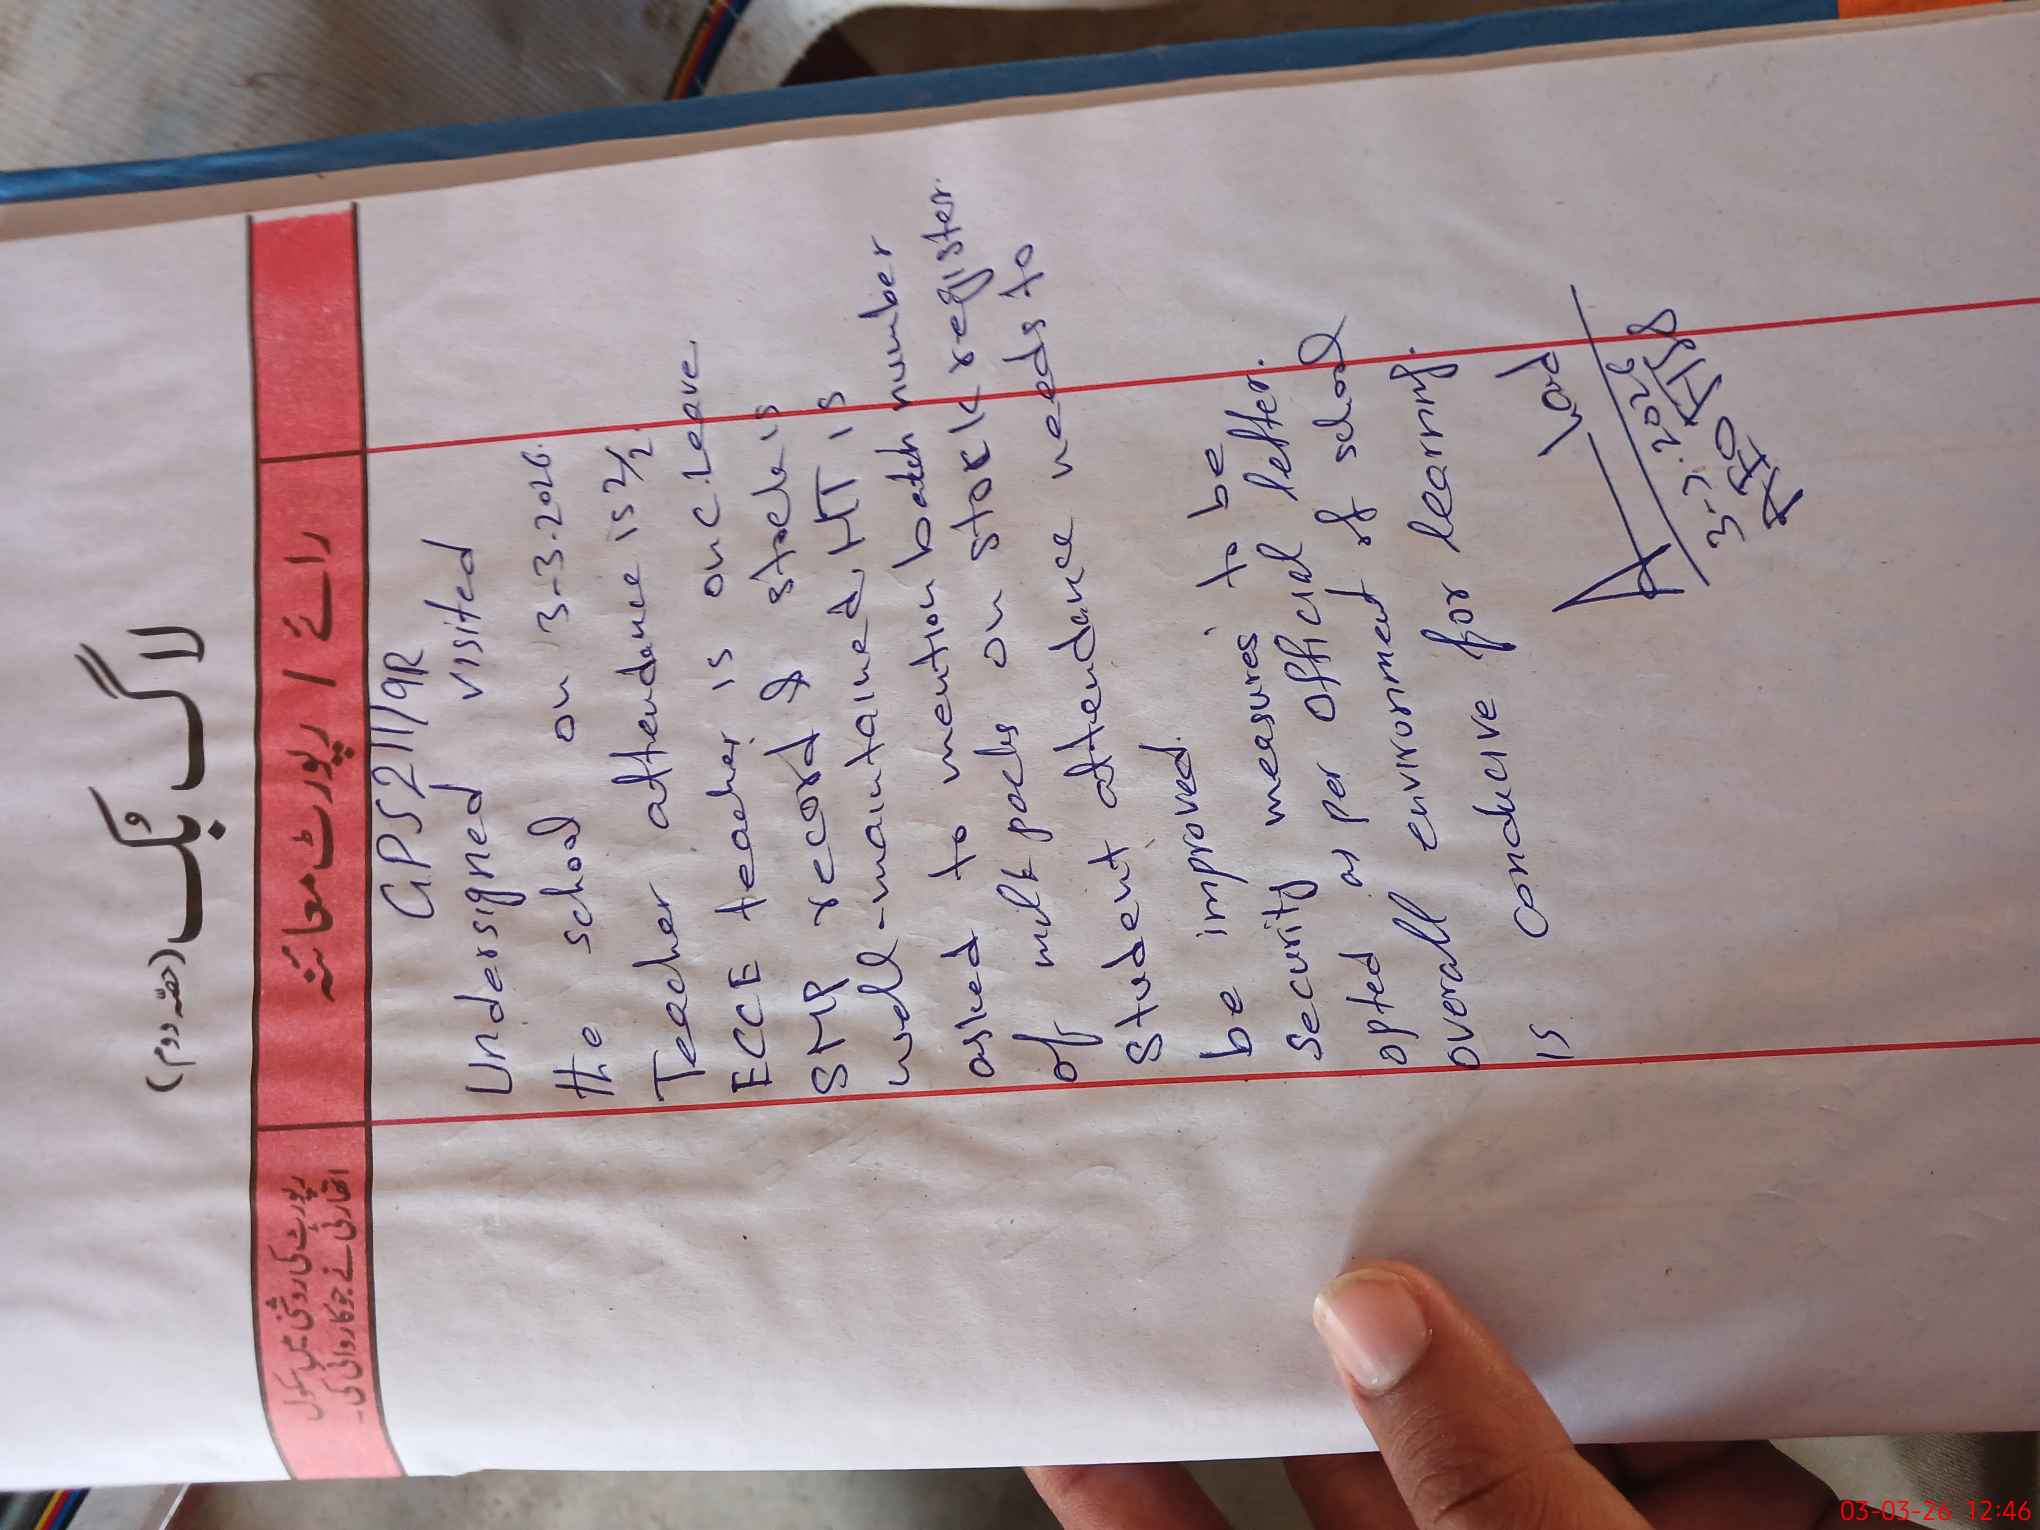 لاگ بُک (حصّہ دوم)
رائے / رپورٹ معائنہ
رپورٹ کی روشنی میں سکول
اتھارٹی نے جو کاروائی کی۔
GPS 211/9R
Undersigned visited
the school on 3-3-2026.
Teacher attendance is 2/2.
ECCE teacher is on C.Leave.
SMP record & stock is
well-maintained, HT is
asked to mention batch number
of milk packs on stock register.
Student attendance needs to
be improved.
Security measures to be
opted as per official letter.
overall environment of school
is conducive for learning.
3-3-2026
03-03-26 12:46